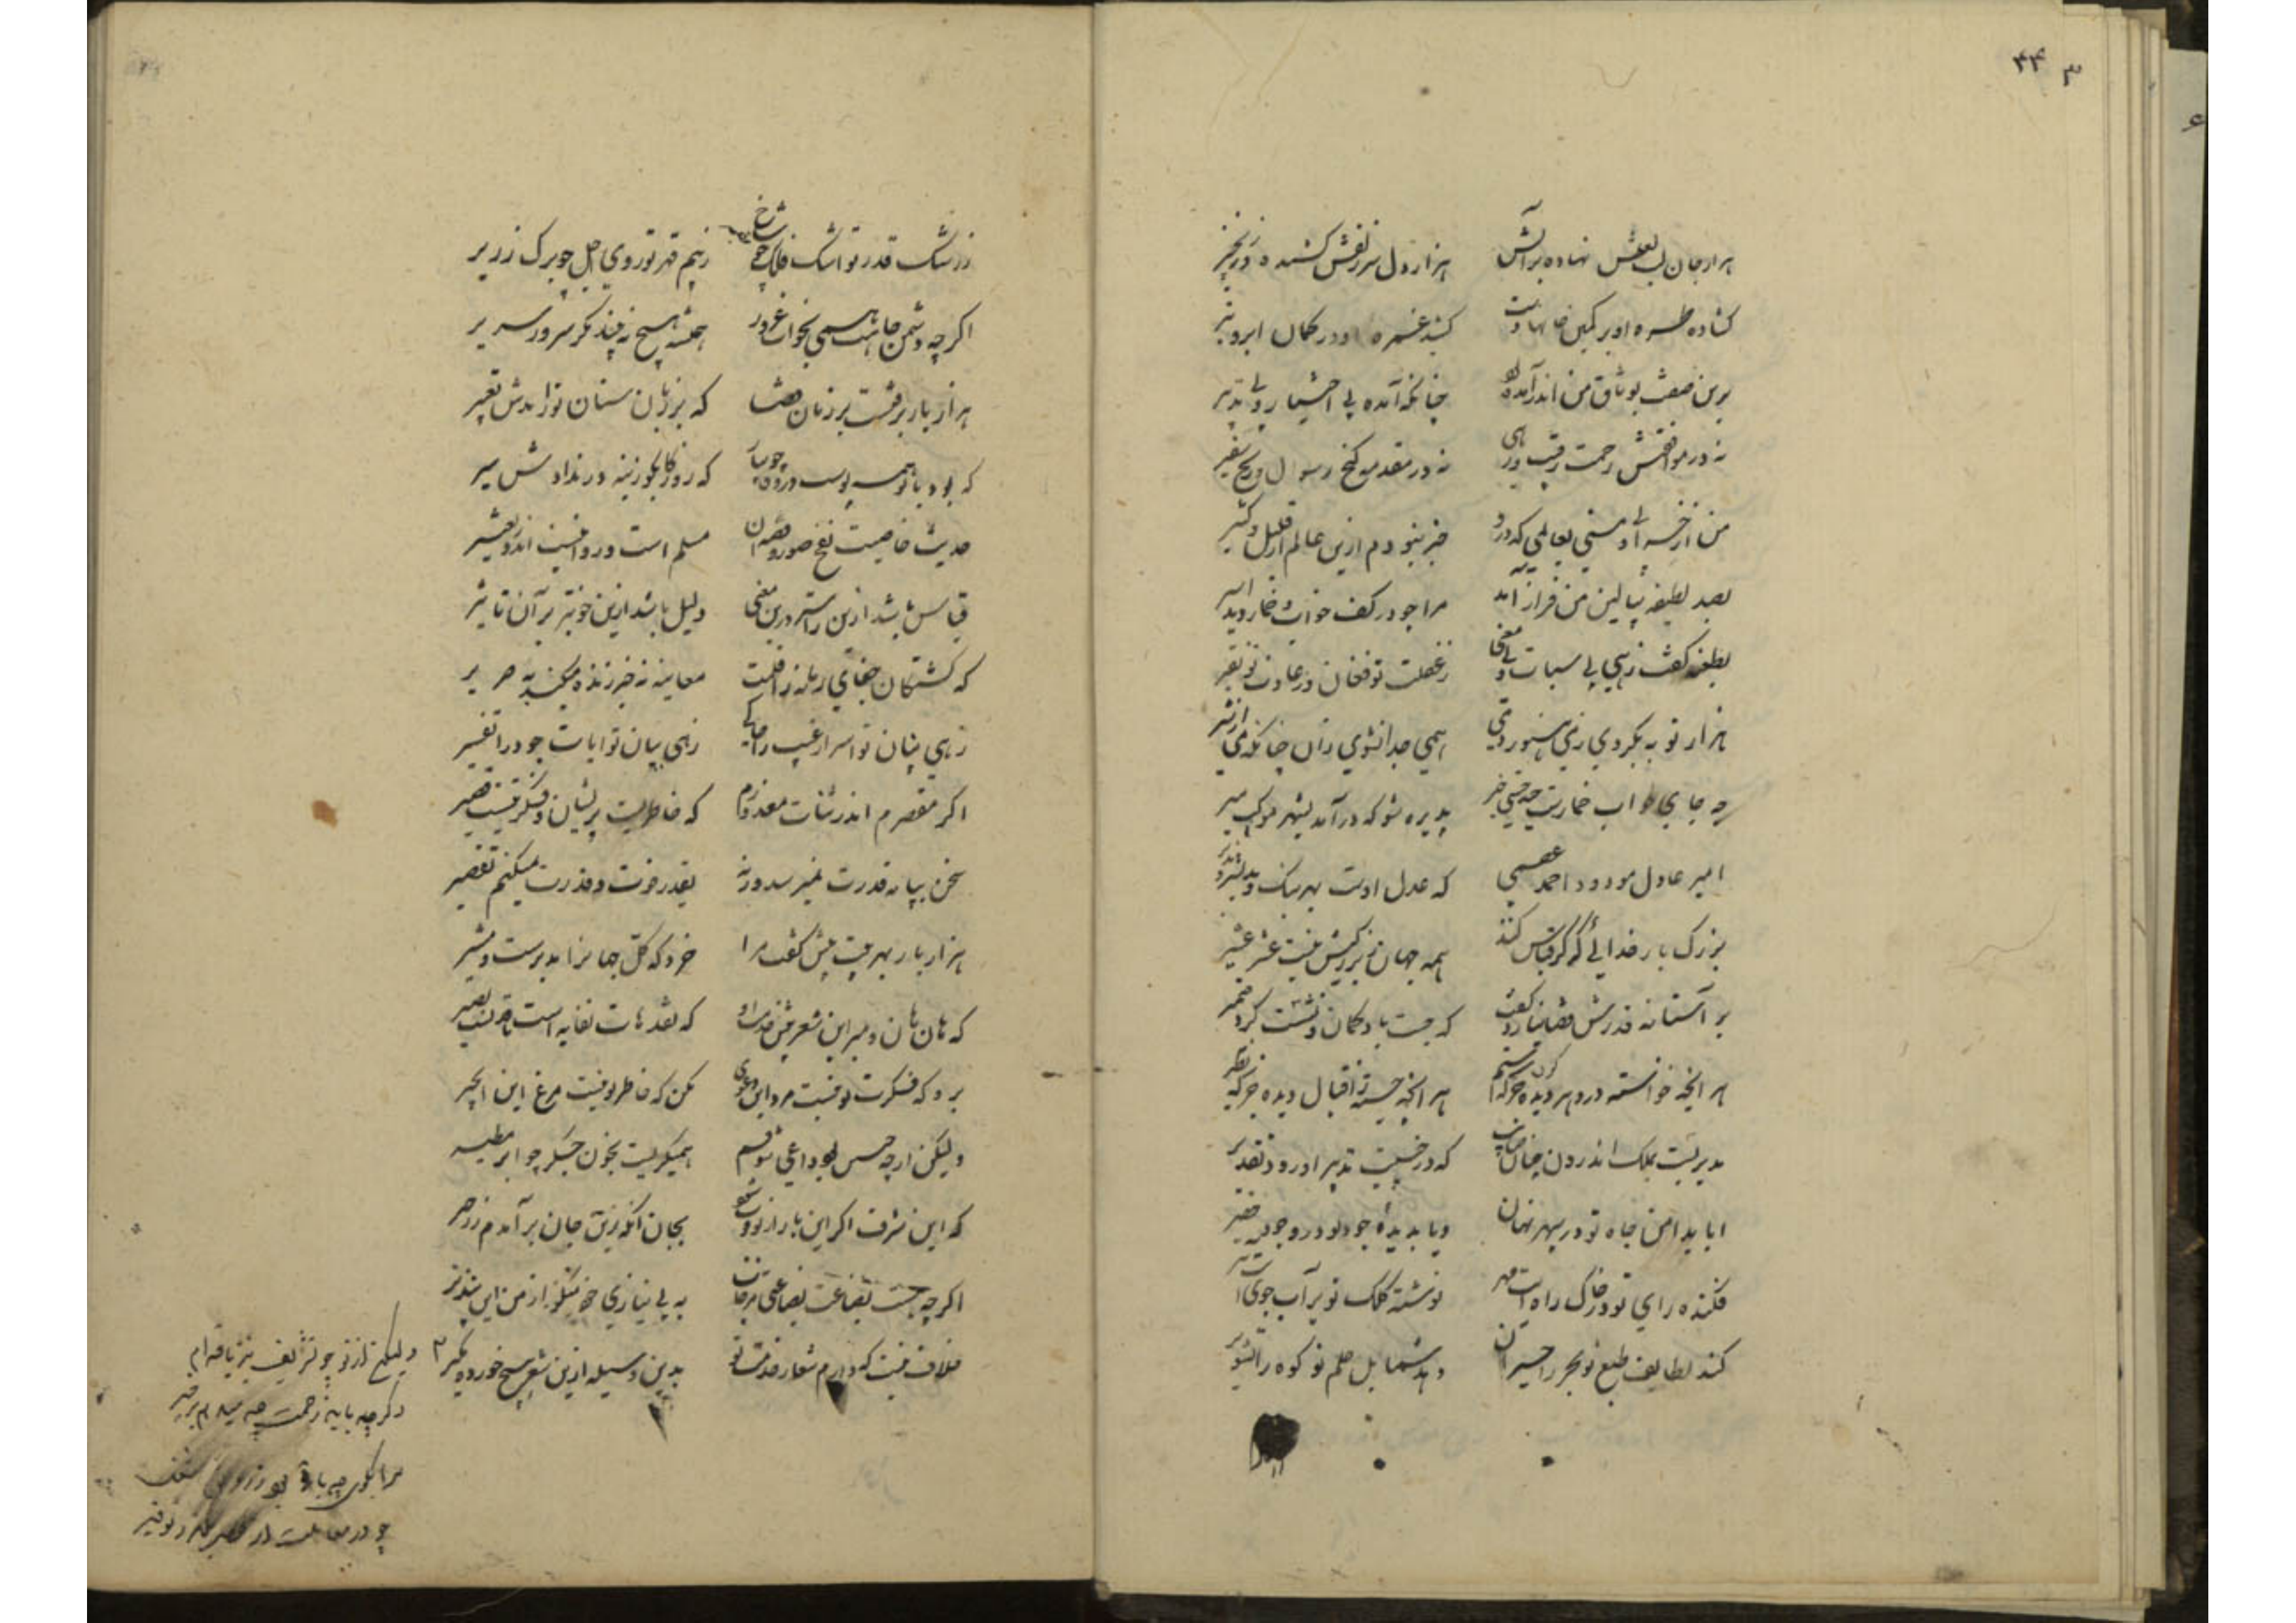 ۴۴ ۳
هزار جان لب لعلش نهاده بر آتش هزار دل سر زلفش کشیده در زنجیر
کشاده طره او بر کمین جانها دست کشیده غمزه او در کمان ابرو تیر
برین صفت بوثاق من اندر آمد و چنانکه آمده بی اختیار و بی تدبیر
نه در موافقتش زحمت رقیب و رهی نه در مقدمه رنج رسول و سفیر
من از خرابی و مستی بعالمی که درو خبر نبودم ازین عالم از قلیل و کثیر
بصد لطیفه ببالین من فراز آمد مرا چو در کف خواب و خمار دید اسیر
بطعنه گفت زهی بی ثبات بی معنی ز غفلت تو فغان وز عادت تو نفیر
هزار توبه بکردی ز می هنوز دمی همی جدا نشوی زان چنانکه می از شیر
چه جای خواب خمارست خیز پذیره شو که در آمد بشهر موکب میر
امیر عادل مودود احمد عصمی که عدل اوست بهر نیک و بد بشیر و نذیر
بزرگ بار خدائی که گر قیاس کنند همه جهان ز بزرگیش نیست عشر عشیر
بر آستانه قدرش قضا نیارد گفت که جست باد گمان و نشست گرد ضمیر
هر آنچه خواسته در دهر دیده جز که ستم هر آنچه جسته ز اقبال دیده جز که نظیر
مدبریست بملک اندرون چنان صائب که در جنیبت تدبیر او رود تقدیر
ایا بدامن جاه تو در سپهر نهان و یا بدیده جود تو در وجود حقیر
فکنده رای تو در خاک راه رایت مهر نوشته کلک تو بر آب جوی آیت تیر
کند لطایف طبع تو بحر را حیران دهد شمایل حلم تو کوه را تشویر
ز رشک قدر تو اشک فلک چو شاخ ز بیم قهر تو روی اجل چو برگ زریر
اگر چه دشمن جاهت همی بخواب غرور بچشمش هیچ نه بیند مگر سرور و سریر
هزار بار برفتست بر زبان قضا که بر زبان سنان تو زایدش تعبیر
که بود با تو همه پوست در وفا چو پیاز که روزگار بجوزینه در ندادش سیر
حدیث خاصیت نفخ صور و قصه آن مسلم است و روا نیست اندرو تغییر
قیاس باشد ازین راستر درین معنی دلیل باشد ازین خوبتر بر آن تاثیر
که کشتگان جفای زمانه را قلمت معاینه نه خبر زنده میکند به صریر
زهی بنان تو اسرار غیب را حاکی زهی بیان تو آیات جود را تفسیر
اگر مقصرم اندر ثنات معذورم که خاطریست پریشان و فکرتیست قصیر
سخن بپایه قدرت نمیرسد ورنه بقدر قوت و قدرت نمیکنم تقصیر
هزار بار بهر بیت بیش گفت مرا خرد که کل جهانرا مدبرست و مشیر
که هان و هان و مبر این شعر پیش خدمت او که نقدهات نفایه است و ناقدیست بصیر
برو که فکرت تو نیست مرد این دعوی مکن که خاطر تو نیست مرغ این انجیر
ولیکن ارچه چنین بود داعی شوقم همی گریست بخون جگر چو ابر مطیر
که این شرف اگر این بار از تو فوت شود بجان آنکه ز تن جان برآرم از زحیر
اگر چه هست بضاعت بضاعتی مزجات به بی نیازی خود از من این بپذیر
خلاف نیست که دارم شعار خدمت تو بدین وسیله ازین شعر هیچ خورده مگیر
ولیکن از تو چو تشریف نیز یافته ام
دگر چه باید زحمت چه میدهم بر خیر
مرا بگوی چه باره بو
چو در